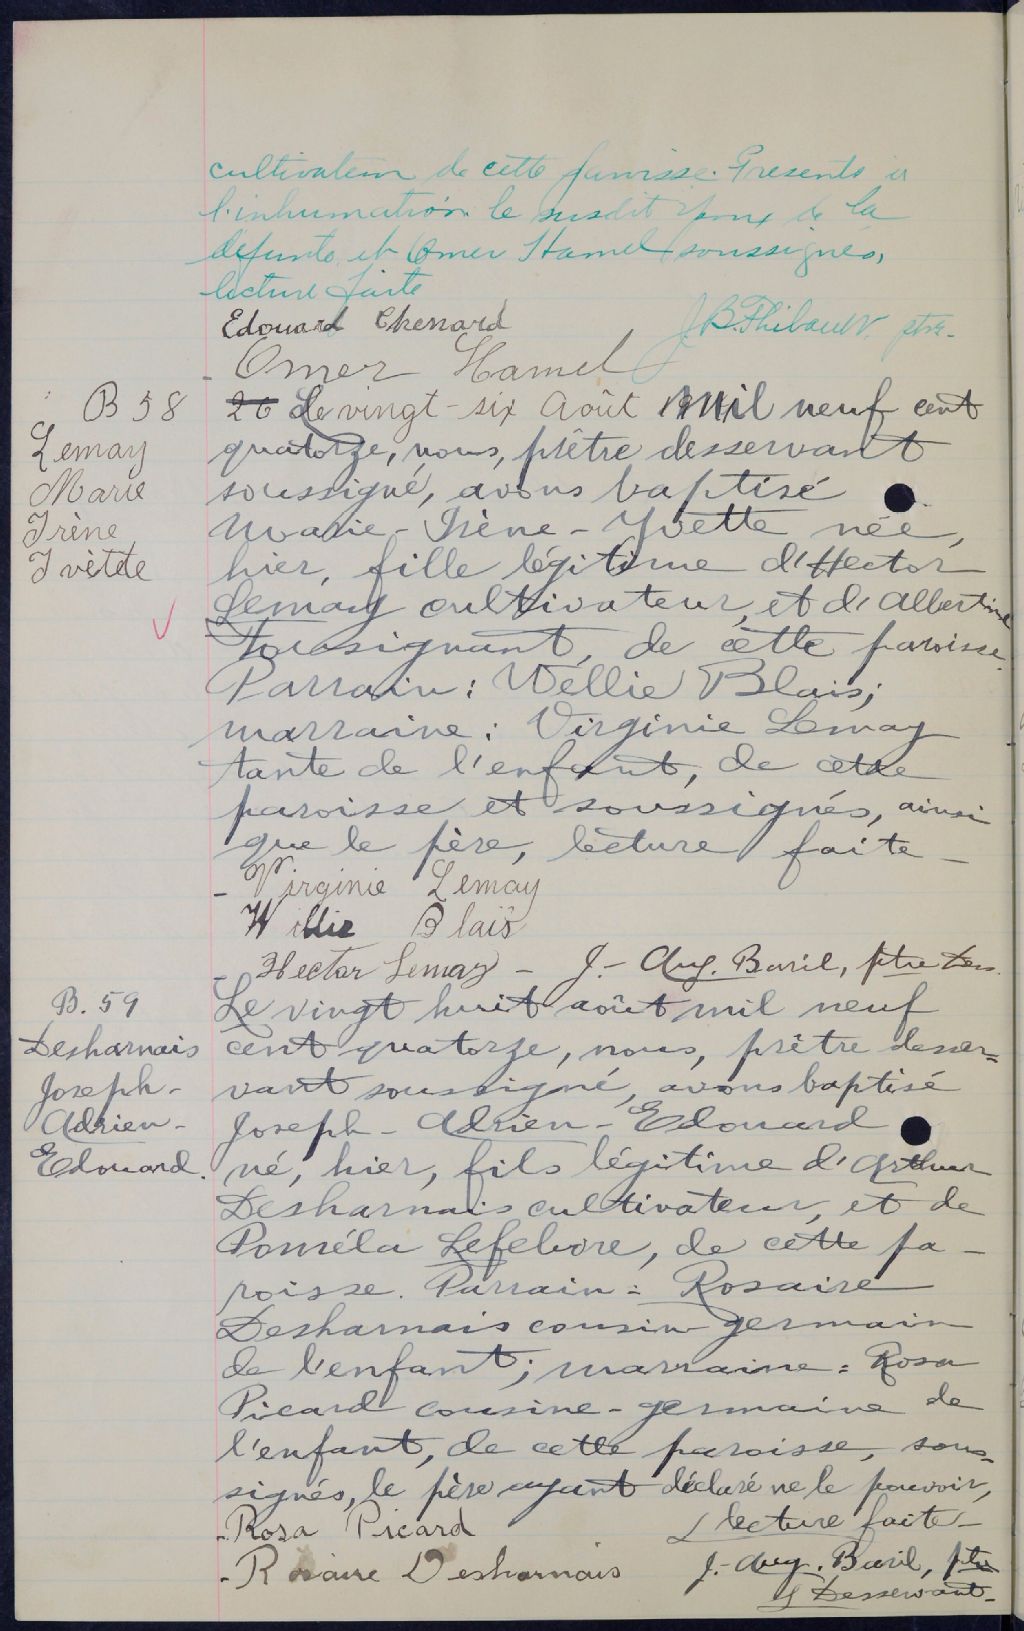 cultivateur de cette paroisse. Presents à
l'inhumation le susdit époux de la
défunte et Omer Hamel soussignés,
lecture faite
Edouard Chenard J.B. Thibault ptre.
Omer Hamel
B 58
Lemay
Marie
Irène
Ivètte
26 Le vingt-six Août Mil neuf cent
quatorze, nous, prêtre desservant
soussigné, avons baptisé
Marie-Irène-Yvette née,
hier, fille légitime d'Hector
Lemay cultivateur, et d'Albertine
Tousignant, de cette paroisse.
Parrain: Wellie Blais;
marraine: Virginie Lemay
tante de l'enfant, de cette
paroisse et soussignés, ainsi
que le père, lecture faite –
- Virginie Lemay
Willie Blais
- Hector Lemay – J.-Aug. Baril, ptre Des.
B. 59
Desharnais
Joseph-
Adrien-
Edouard.
Le vingt huit août mil neuf
cent quatorze, nous, prêtre desser=
vant soussigné, avons baptisé
Joseph-Adrien-Edouard
né, hier, fils légitime d'Arthur
Desharnais cultivateur, et de
Poméla Lefebvre, de cette pa-
roisse. Parrain: Rosaire
Desharnais cousin germain
de l'enfant; marraine: Rosa
Picard cousine-germaine de
l'enfant, de cette paroisse, sous-
signés, le père ayant déclaré ne le pouvoir,
- Rosa Picard lecture faite –
- Rosaire Desharnais J.-Aug. Baril, ptre
Desservant-